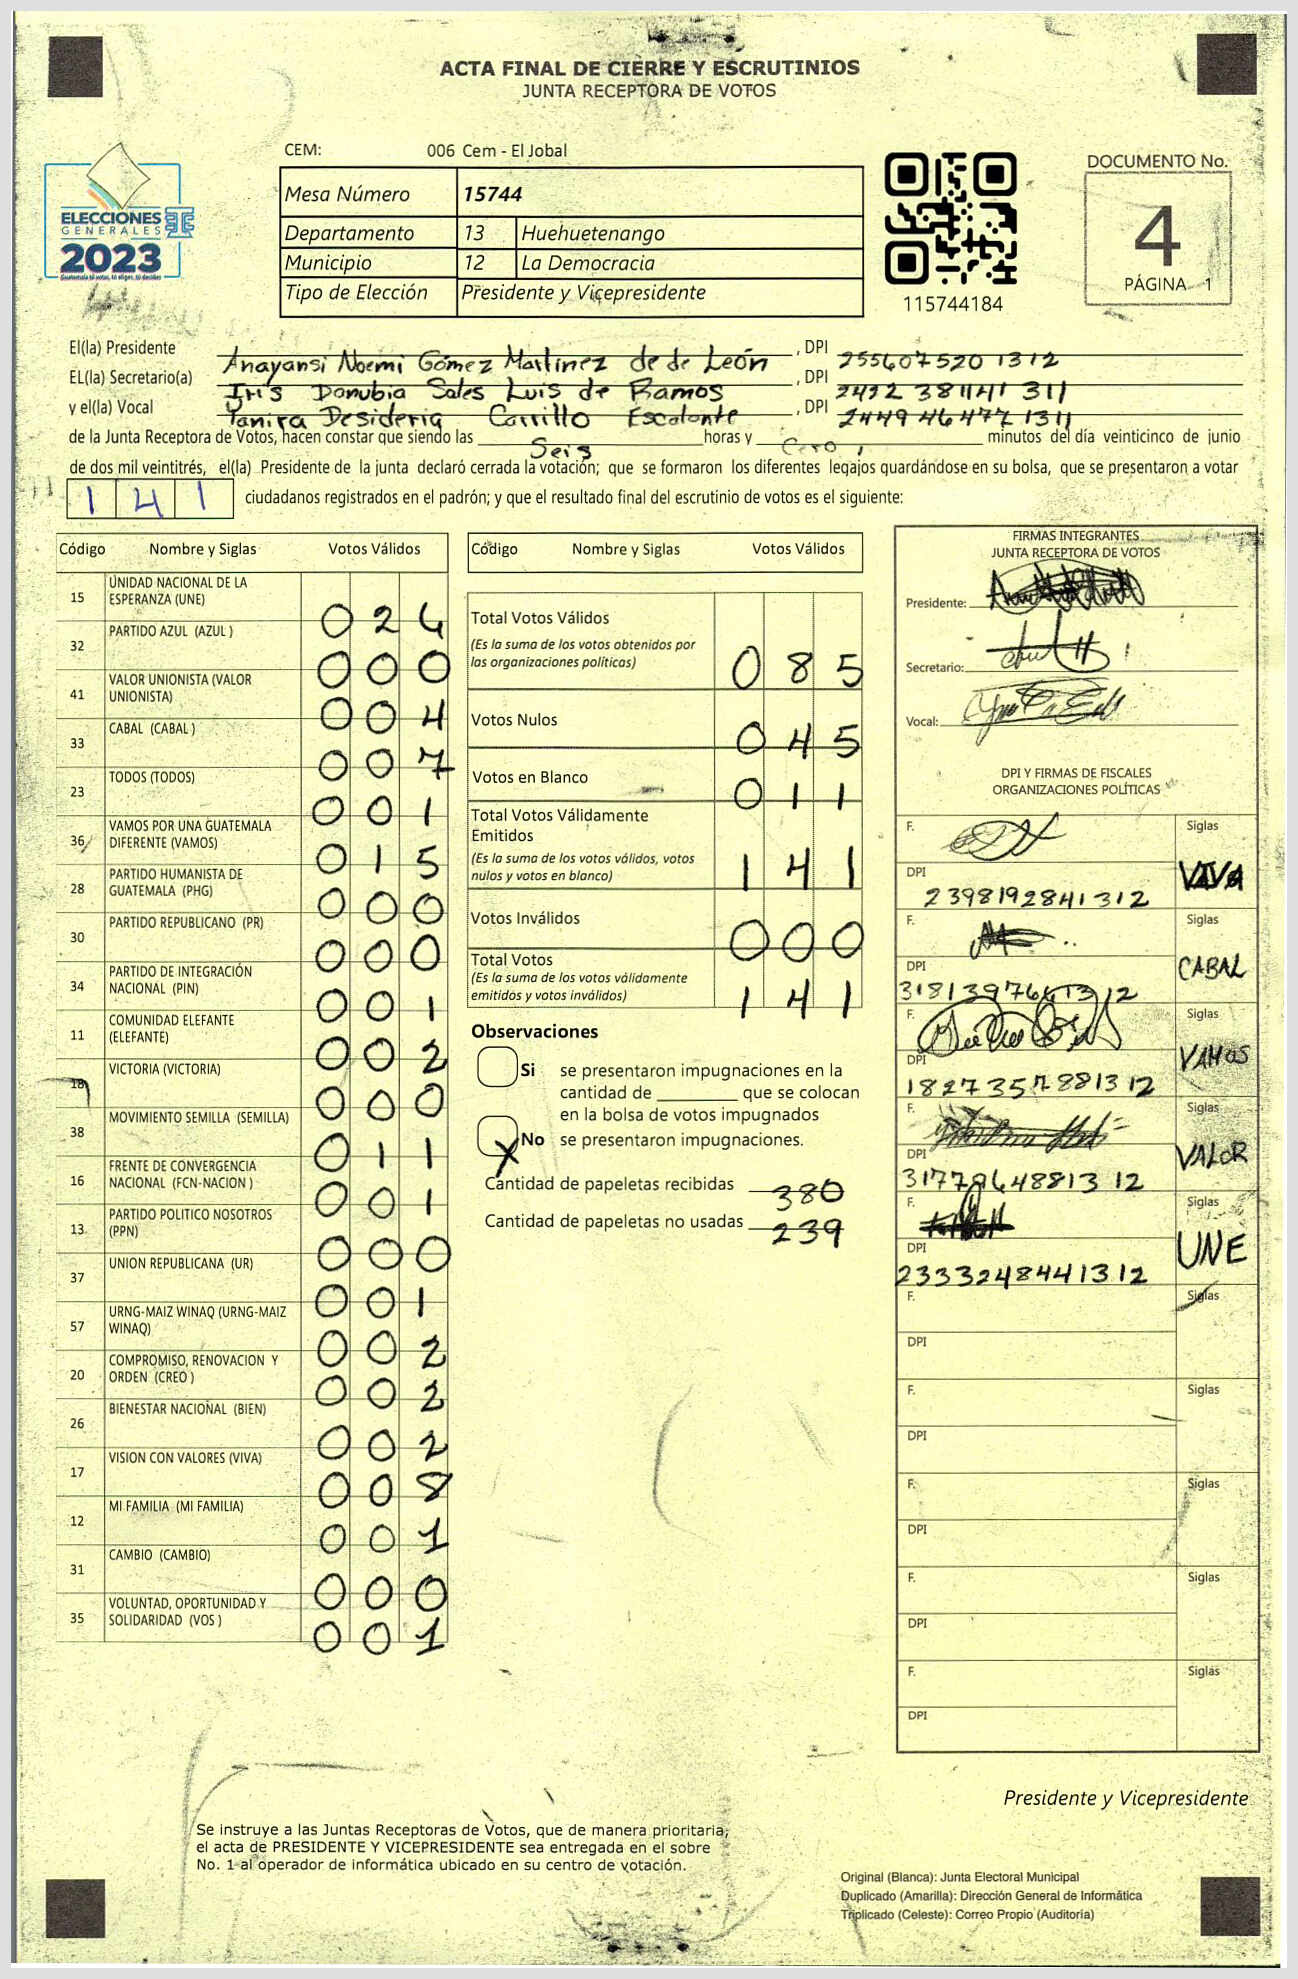 ACTA FINAL DE CIERRE Y ESCRUTINIOS
JUNTA RECEPTORA DE VOTOS
CEM: 006 Cem - El Jobal
Mesa Número 15744
Departamento 13 Huehuetenango
Municipio 12 La Democracia
Tipo de Elección Presidente y Vicepresidente
ELECCIONES
GENERALES
2023
115744184
DOCUMENTO No.
4
PÁGINA 1
El(la) Presidente Anayansi Noemi Gómez Martinez de de León , DPI 255607520 1312
EL(la) Secretario(a) Iris Danubia Sales Luis de Ramos , DPI 2422 381141 311
y el(la) Vocal Yanira Desideria Carrillo Escalante , DPI 2449 46477 1311
de la Junta Receptora de Votos, hacen constar que siendo las Seis horas y Cero minutos del día veinticinco de junio
de dos mil veintitrés, el(la) Presidente de la junta declaró cerrada la votación; que se formaron los diferentes legajos guardándose en su bolsa, que se presentaron a votar
141 ciudadanos registrados en el padrón; y que el resultado final del escrutinio de votos es el siguiente:
Código Nombre y Siglas Votos Válidos
15 UNIDAD NACIONAL DE LA ESPERANZA (UNE) 026
32 PARTIDO AZUL (AZUL ) 000
41 VALOR UNIONISTA (VALOR UNIONISTA) 004
33 CABAL (CABAL ) 007
23 TODOS (TODOS) 001
36 VAMOS POR UNA GUATEMALA DIFERENTE (VAMOS) 015
28 PARTIDO HUMANISTA DE GUATEMALA (PHG) 000
30 PARTIDO REPUBLICANO (PR) 000
34 PARTIDO DE INTEGRACIÓN NACIONAL (PIN) 001
11 COMUNIDAD ELEFANTE (ELEFANTE) 002
18 VICTORIA (VICTORIA) 000
38 MOVIMIENTO SEMILLA (SEMILLA) 011
16 FRENTE DE CONVERGENCIA NACIONAL (FCN-NACION ) 001
13 PARTIDO POLITICO NOSOTROS (PPN) 000
37 UNION REPUBLICANA (UR) 001
57 URNG-MAIZ WINAQ (URNG-MAIZ WINAQ) 002
20 COMPROMISO, RENOVACION Y ORDEN (CREO ) 002
26 BIENESTAR NACIONAL (BIEN) 002
17 VISION CON VALORES (VIVA) 008
12 MI FAMILIA (MI FAMILIA) 001
31 CAMBIO (CAMBIO) 000
35 VOLUNTAD, OPORTUNIDAD Y SOLIDARIDAD (VOS ) 001
Código Nombre y Siglas Votos Válidos
Total Votos Válidos 085
(Es la suma de los votos obtenidos por
las organizaciones políticas)
Votos Nulos 045
Votos en Blanco 011
Total Votos Válidamente
Emitidos 141
(Es la suma de los votos válidos, votos
nulos y votos en blanco)
Votos Inválidos 000
Total Votos 141
(Es la suma de los votos válidamente
emitidos y votos inválidos)
Observaciones
Si se presentaron impugnaciones en la
cantidad de ________ que se colocan
en la bolsa de votos impugnados
X No se presentaron impugnaciones.
Cantidad de papeletas recibidas 380
Cantidad de papeletas no usadas 239
FIRMAS INTEGRANTES
JUNTA RECEPTORA DE VOTOS
Presidente:
Secretario:
Vocal:
DPI Y FIRMAS DE FISCALES
ORGANIZACIONES POLÍTICAS
F. Siglas
DPI 2398192841312 VIVA
F. Siglas
DPI CABAL
F. Siglas
DPI 1827357881312 VAMOS
F. Siglas
DPI VALOR
F. Siglas
DPI 2333248441312 UNE
F. Siglas
DPI
F. Siglas
DPI
F. Siglas
DPI
F. Siglas
DPI
F. Siglas
DPI
Presidente y Vicepresidente
Se instruye a las Juntas Receptoras de Votos, que de manera prioritaria,
el acta de PRESIDENTE Y VICEPRESIDENTE sea entregada en el sobre
No. 1 al operador de informática ubicado en su centro de votación.
Original (Blanca): Junta Electoral Municipal
Duplicado (Amarilla): Dirección General de Informática
Triplicado (Celeste): Correo Propio (Auditoría)